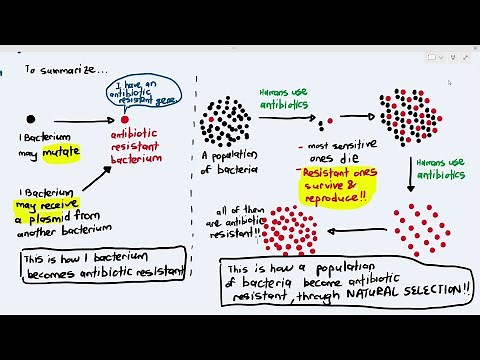 To summarize...
I have an
antibiotic
resistant gene.
1 Bacterium
may mutate
antibiotic
resistant
bacterium
1 Bacterium
may receive
a plasmid from
another bacterium
This is how 1 bacterium
becomes antibiotic resistant
A population
of bacteria
Humans use
antibiotics
- most sensitive
ones die
- Resistant ones
survive &
reproduce!!
Humans use
antibiotics
all of them
are antibiotic
resistant!!
This is how a population
of bacteria become antibiotic
resistant, through NATURAL SELECTION!!